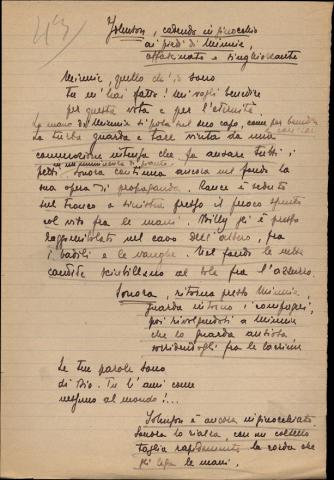 43)
Johnson, cadendo in ginocchio
ai piedi di Minnie,
affascinato e singhiozzante
Minnie, quello che son
tu m'hai fatto! mi vogli benedire
per questa vita e per l'eternità
la mano di Minnie si posa sul suo capo, come per benedirlo
la turba guarda e tace vinta da una
commozione intensa che fa ansare tutti i
petti. Sonora continua ancora nel fondo la
sua opera di propaganda. Rance è seduto
sul tronco a sinistra presso il fuoco spento
col viso fra le mani. Billy gli è presso
raggomitolato nel cavo dell'albero, fra
i badili e le vanghe. Nel fondo le nubi
candide scintillano al sole fra l'azzurro.
Sonora, ritorna presso Minnie,
guarda intorno i compagni,
poi rivolgendosi a Minnie
che lo guarda ansiosa
sorridendogli fra le lacrime
Le tue parole sono
di Dio. Tu l'ami come
nessuno al mondo!...
Johnson è ancora inginocchiato.
Sonora lo rialza, con un coltello
taglia rapidamente la corda che
gli lega le mani.